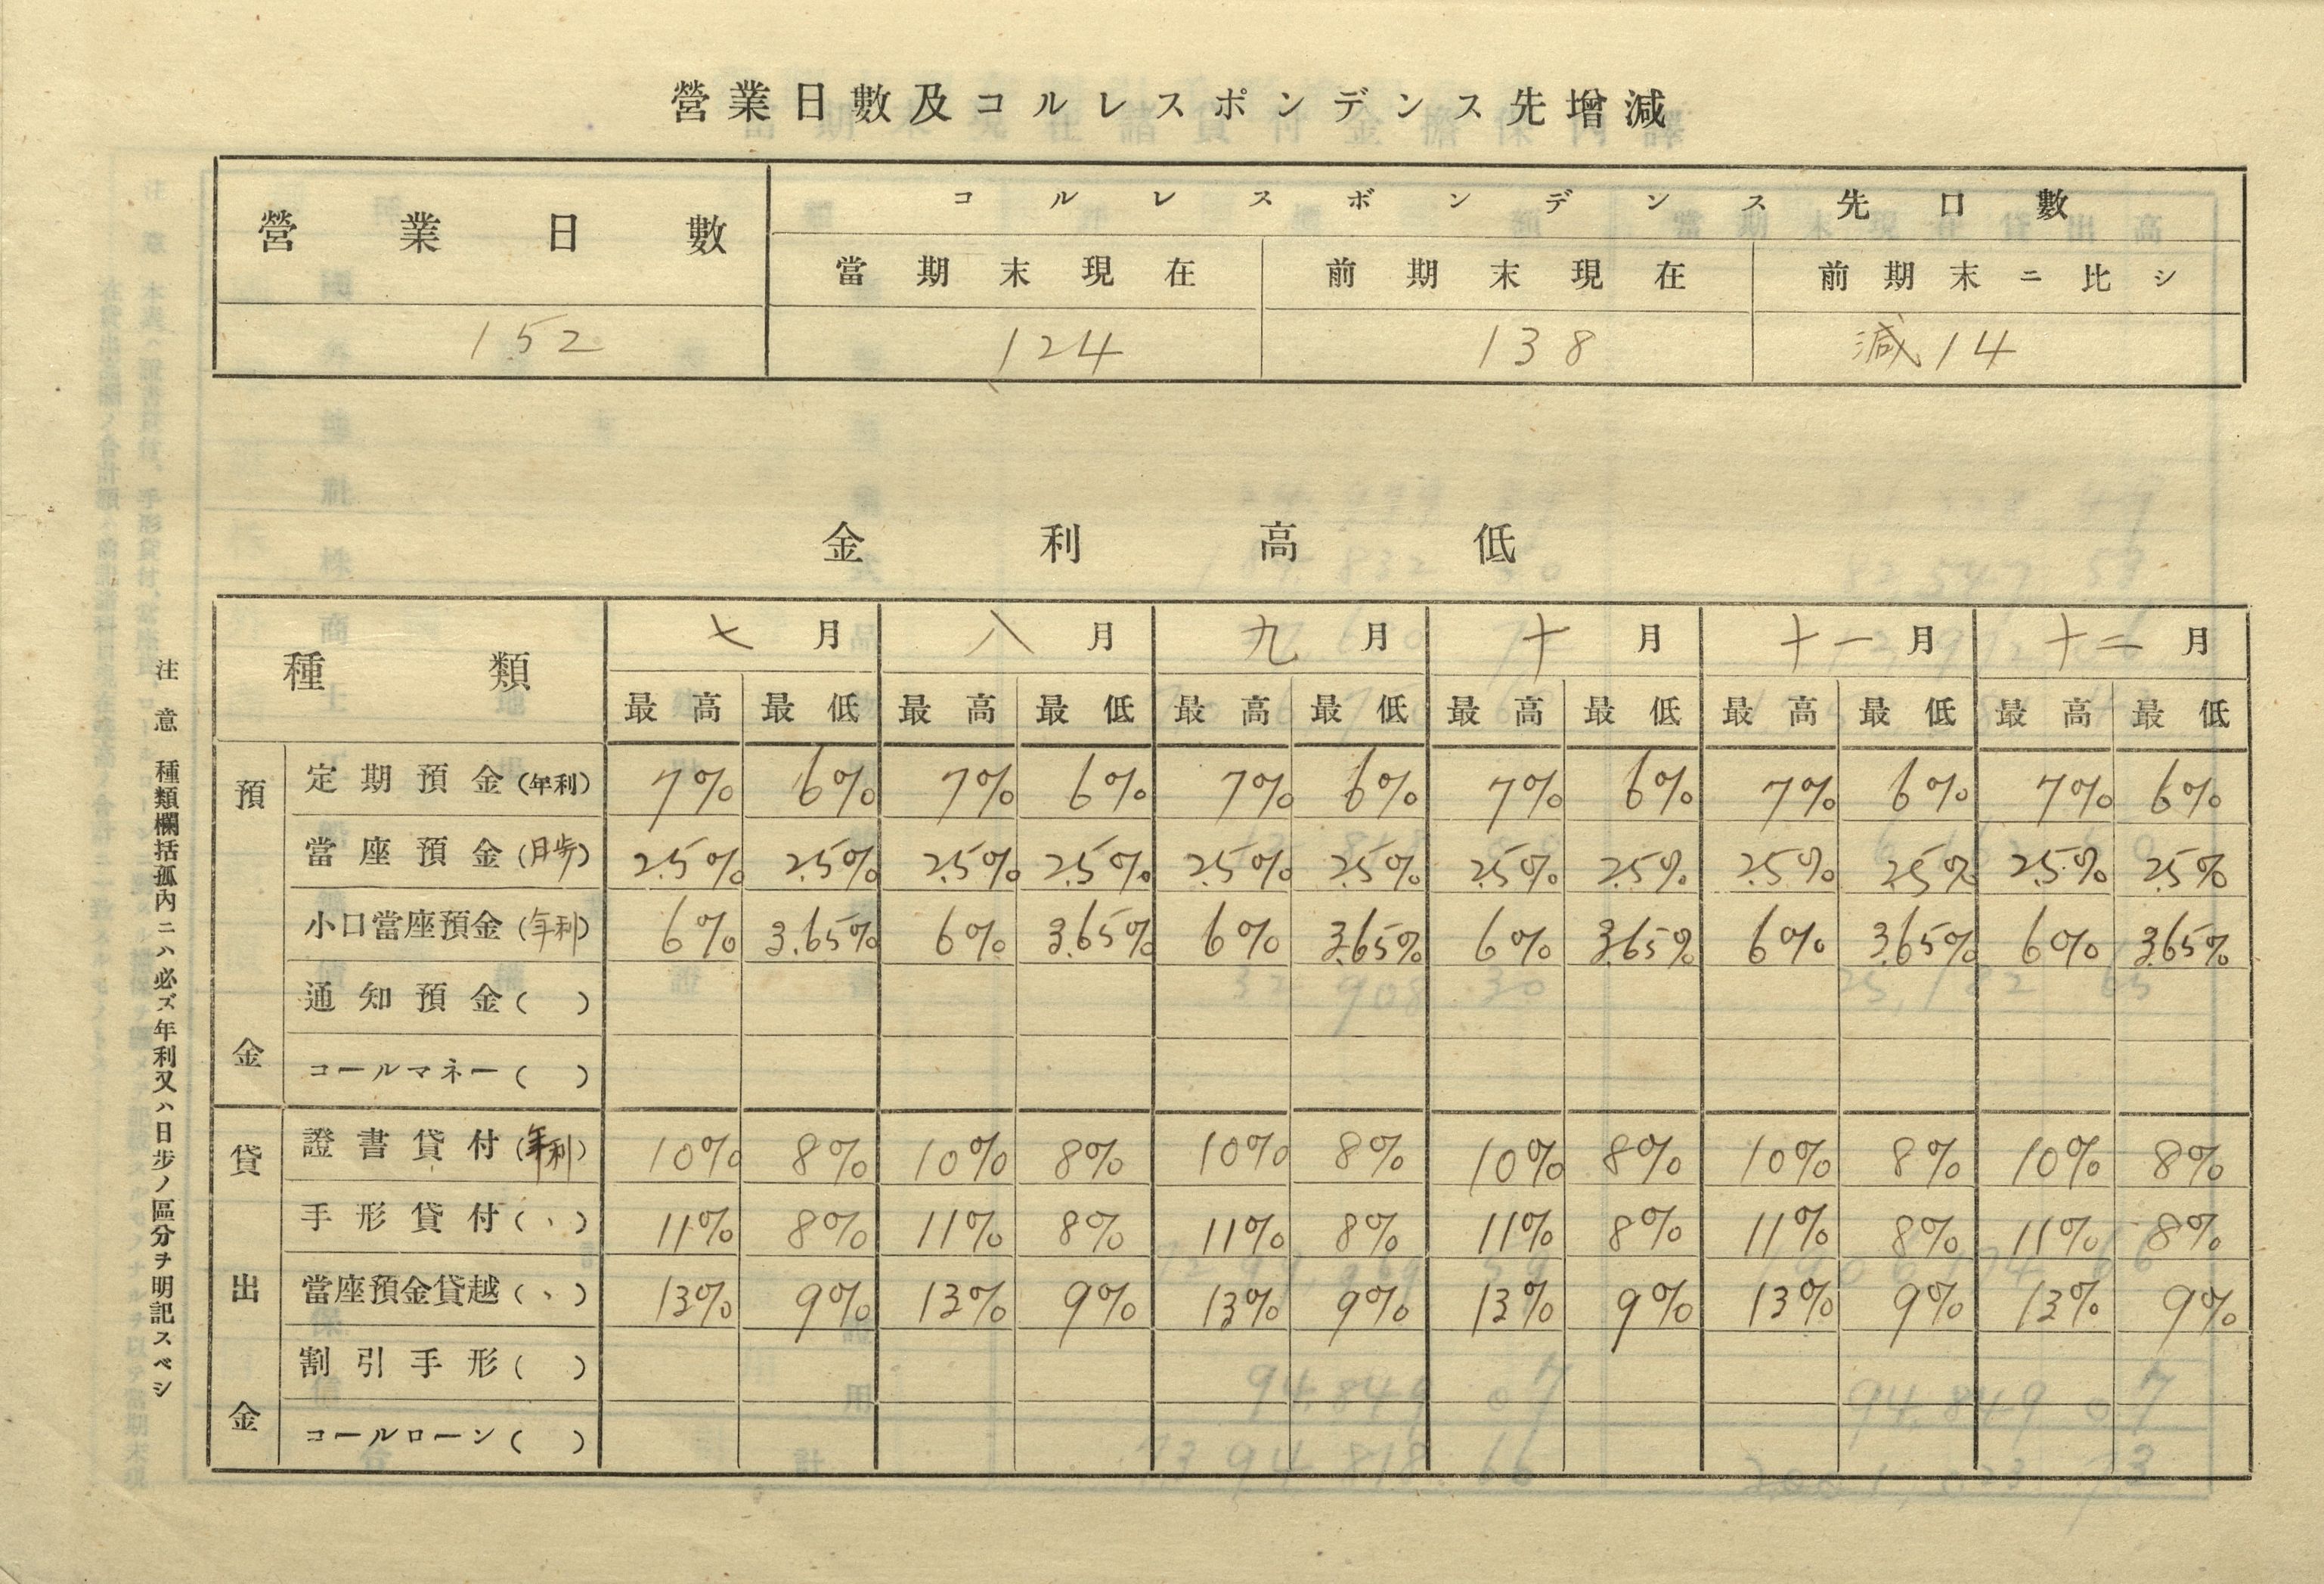 營業日數及コルレスポンデンス先增減
營業日數 コルレスボンデンス先口數
當期末現在 前期末現在 前期末ニ比シ
152 124 138 減14
金利高低
種類 七月 八月 九月 十月 十一月 十二月
最高 最低 最高 最低 最高 最低 最高 最低 最高 最低 最高 最低
預金
定期預金(年利) 7% 6% 7% 6% 7% 6% 7% 6% 7% 6% 7% 6%
當座預金(日歩) 2.5% 2.5% 2.5% 2.5% 2.5% 2.5% 2.5% 2.5% 2.5% 2.5% 2.5% 2.5%
小口當座預金(年利) 6% 3.65% 6% 3.65% 6% 3.65% 6% 3.65% 6% 3.65% 6% 3.65%
通知預金( )
コールマネー( )
貸出金
證書貸付(年利) 10% 8% 10% 8% 10% 8% 10% 8% 10% 8% 10% 8%
手形貸付(、) 11% 8% 11% 8% 11% 8% 11% 8% 11% 8% 11% 8%
當座預金貸越(、) 13% 9% 13% 9% 13% 9% 13% 9% 13% 9% 13% 9%
割引手形( )
コールローン( )
注意 種類欄括孤內ニハ必ズ年利又ハ日步ノ區分ヲ明記スベシ